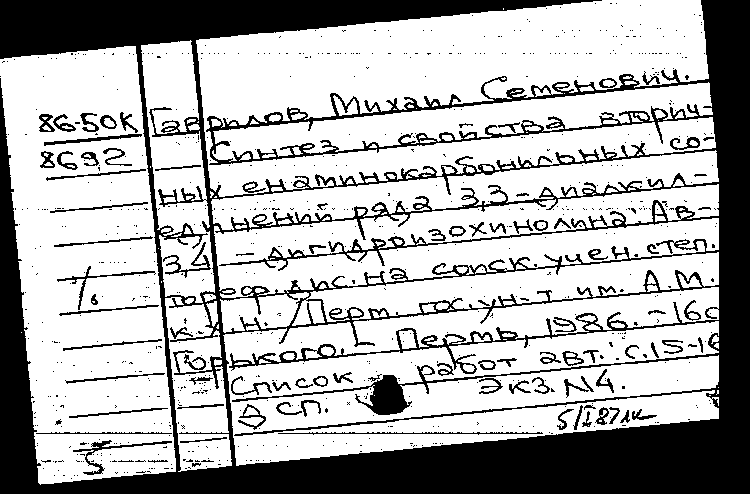 86-50К Гаврилов, Михаил Семенович.
8692 Синтез и свойства вторич-
ных енаминокарбонильных со-
единений ряда 3,3-диалкил-
3,4-дигидроизохинолина: Ав-
тореф. дис. на соиск. учен. степ.
к.х.н. / Перм. гос. ун-т им. А.М.
Горького. - Пермь, 1986. - 16с
Список работ авт.: с. 15-16
сп. Экз. N4.
5/I 87
5